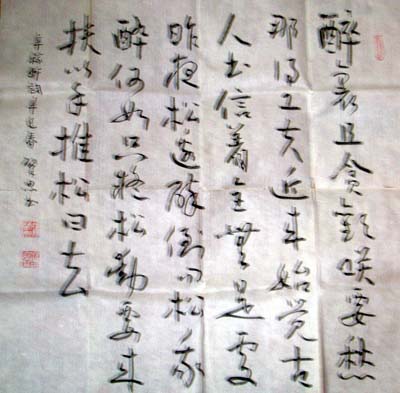 醉裏且貪歡咲要愁
那得工夫近来始覺古
人书信着全無是處
昨夜松邊醉倒问松我
醉何如只疑松動要来
扶以手推松曰去
辛稼軒詞辛巳春